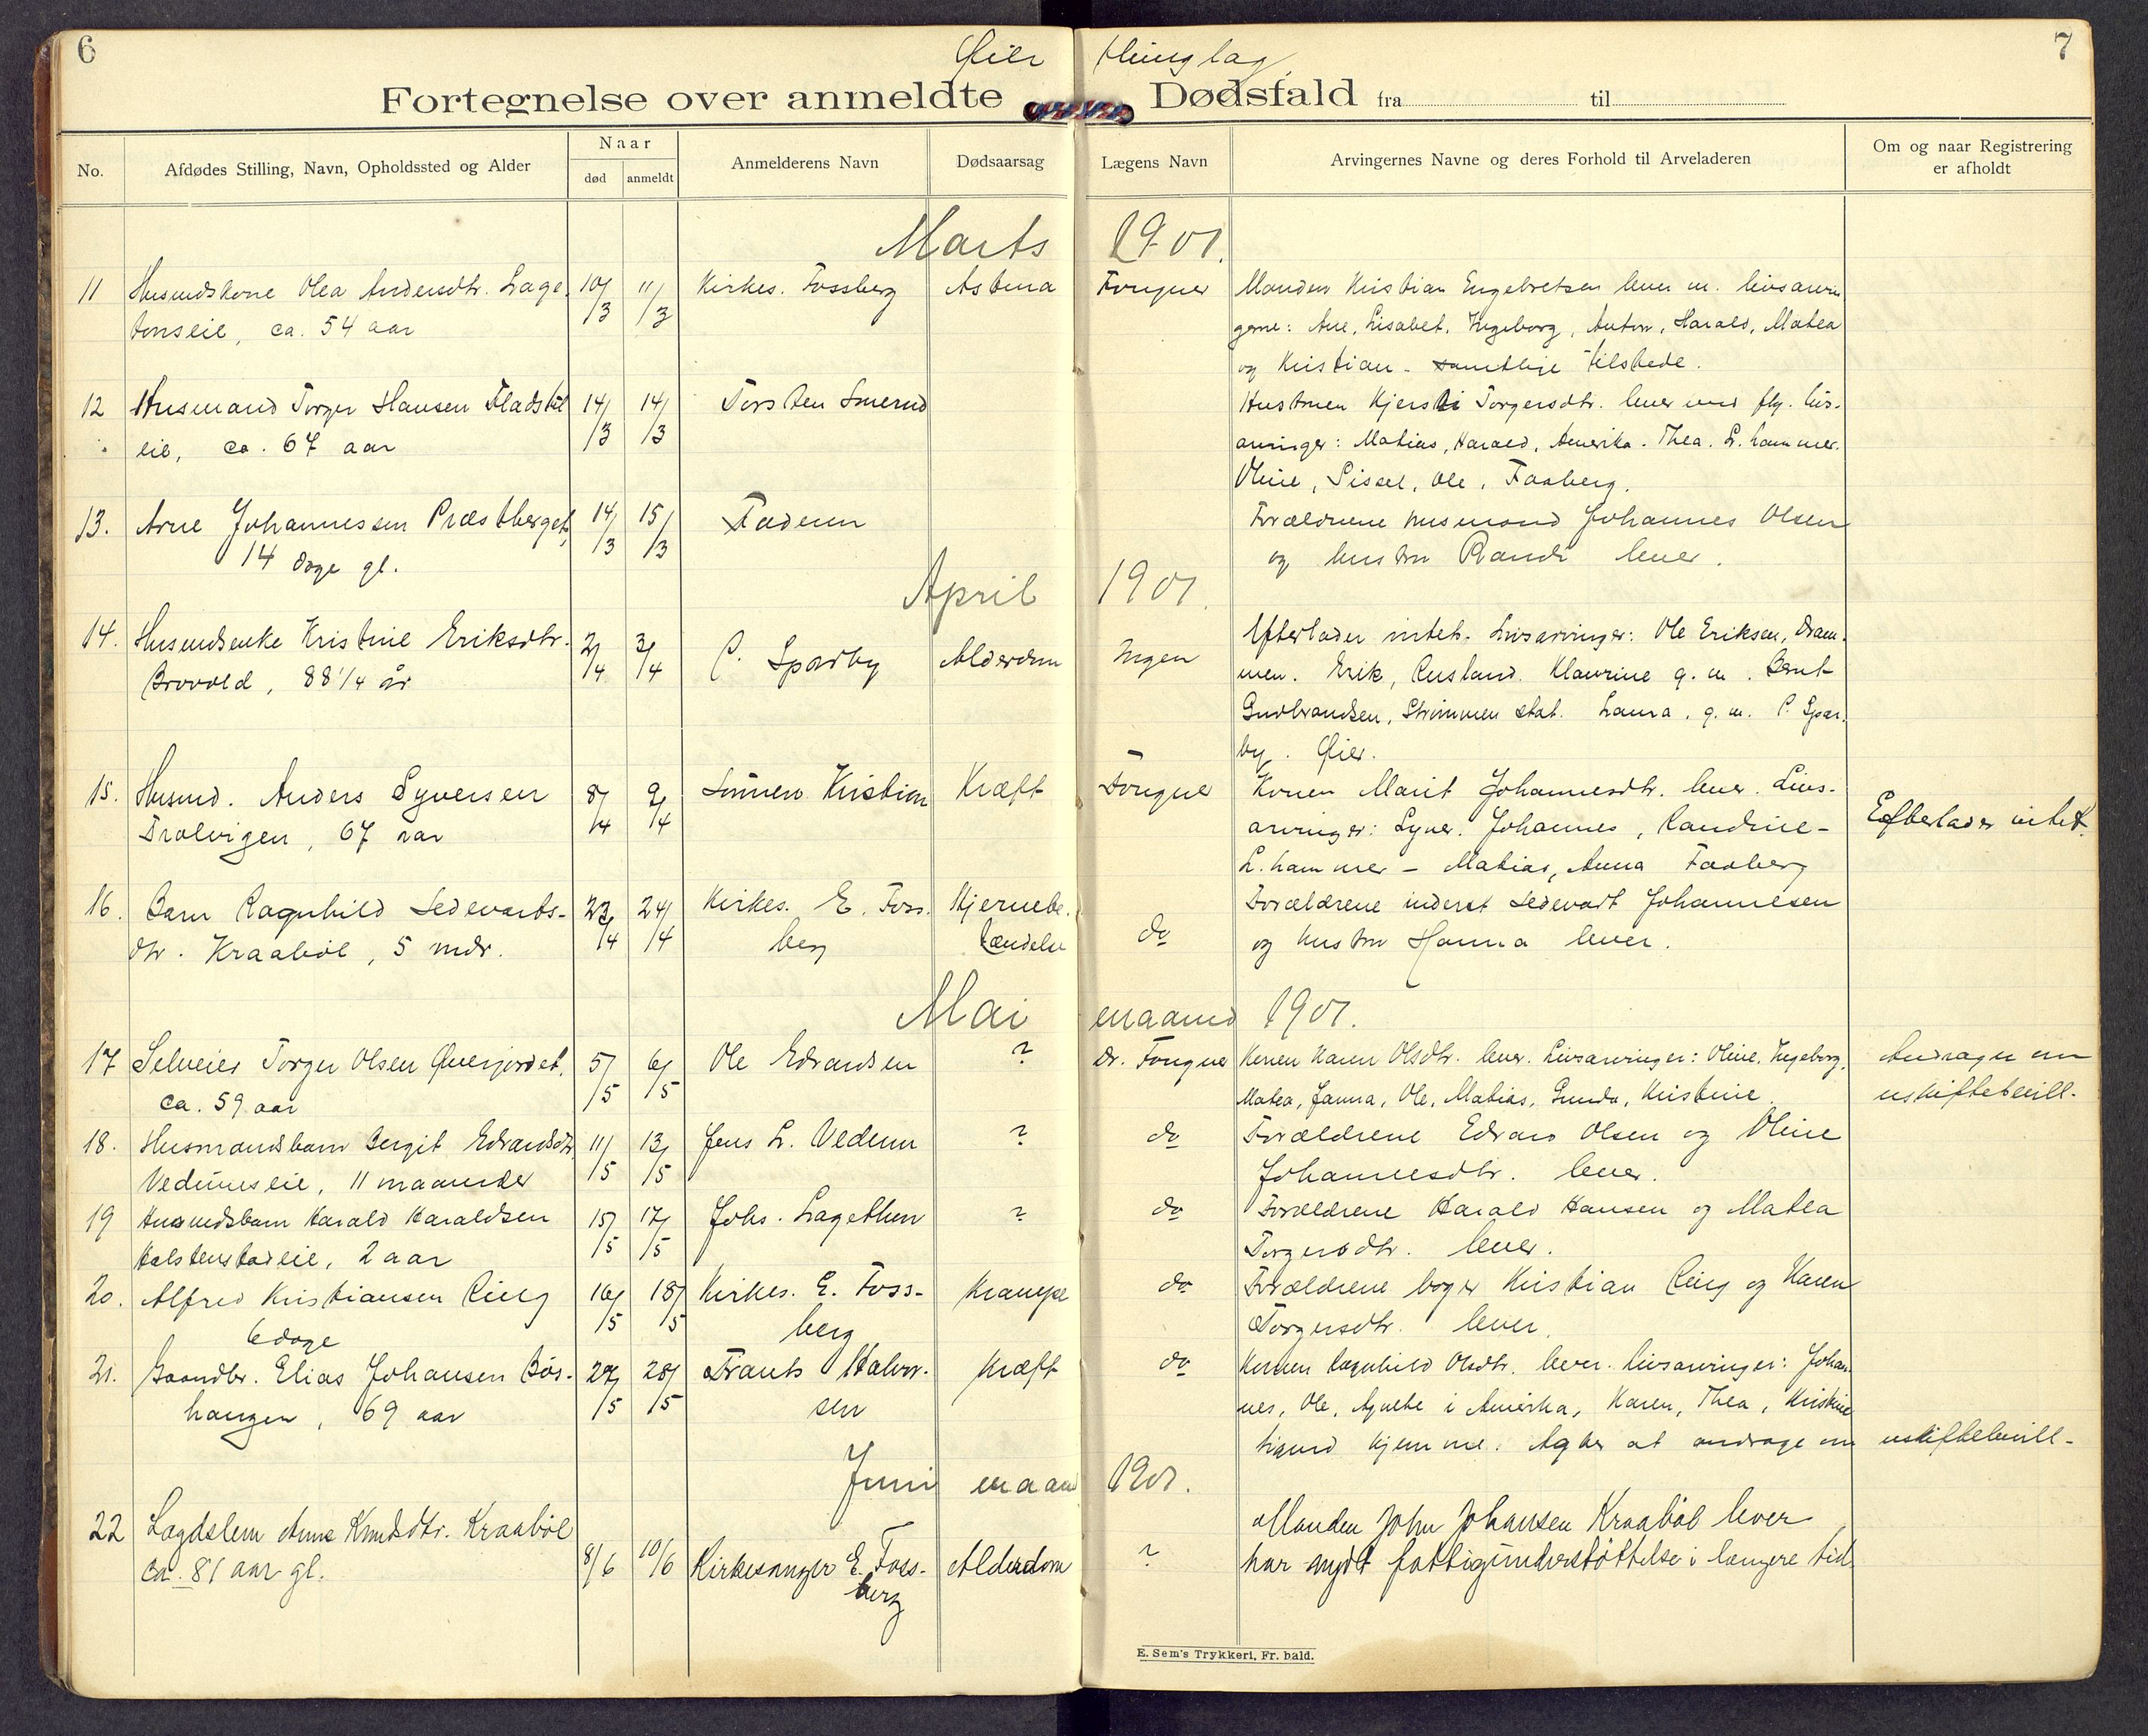 6
7
Øier thinglag
Fortegnelse over anmeldte Dødsfald fra til
No.
Afdødes Stilling, Navn, Opholdssted og Alder
Naar
død
anmeldt
Anmelderens Navn
Dødsaarsag
Lægens Navn
Arvingernes Navne og deres Forhold til Arveladeren
Om og naar Registrering
er afholdt
Marts 1901.
11 Husmdskone Olea Andersdtr. Lage- 10/3 11/3 Kirkes. Fossberg Astma Fougner Manden Kristian Engebretsen lever m. livsarvin
tonseie, ca. 54 aar
gerne: Ane, Lisabet, Ingeborg, Anton, Harald, Matea
og Kristian - samtlige tilstede.
12 Husmand Torger Hansen Fladstil 14/3 14/3 Torsten Smerud Hustruen Kjersti Torgersdtr. lever med flg. livs-
eie, ca. 67 aar
arvinger: Matias, Harald, Amerika. Thea. L.hammer.
Oline, Sissel, Ole, Faaberg.
13. Arne Johannessen Præstberget, 14/3 15/3 Faderen Forældrene husmand Johannes Olsen
14 dage gl.
og hustru Randi lever.
April 1901.
14. Husmdsenke Kristine Eriksdtr. 2/4 3/4 P. Sparby Alderdom Ingen Efterlader intet. Livsarvinger: Ole Eriksen, Dram-
Brovold, 88 1/4 år
men. Erik, Rusland. Klaurine g. m. Bernt
Gudbrandsen, Strømmen stat. Laura, g. m. P. Spar-
by. Øier.
15. Husmd. Anders Syversen 8/4 9/4 Sønnen Kristian Kræft Fougner Konen Marit Johannesdtr. lever. Livs-
67 aar
arvinger: Syver, Johannes, Randine - Efterlader intet.
L.hammer - Matias, Anna Faaberg
16. Barn Ragnhild Sedevarts- 23/4 24/4 Kirkes. E. Foss- Hjernebe- do Forældrene inderst Sedevart Johannesen
dtr. Kraabøl, 5 mdr. berg tændelse og hustru Hanna lever.
Mai maaned 1901.
17 Selveier Torger Olsen Øverjordet, 5/5 6/5 Ole Edvardsen ? Dr. Fougner Konen Karen Olsdtr. lever. Livsarvinger: Oline, Ingeborg, Andrager om
ca. 59 aar
Matea, Janna, Ole, Matias, Gunda, Kristine. uskiftebevill-
18. Husmandsbarn Bergit Edvardsdtr. 11/5 13/5 Jens L. Vedum ? do Forældrene Edvard Olsen og Oline
Vedumseie, 11 maaneder
Johannesdtr. lever.
19 Husmdsbarn Harald Haraldsen 15/5 17/5 Johs. Lagethun ? do Forældrene Harald Hansen og Matea
Halstenstadeie, 2 aar
Torgersdtr. lever.
20. Alfred Kristiansen Ring 16/5 18/5 Kirkes. E. Foss- Krampe do Forældrene bager Kristian Ring og Karen
6 dage berg Torgersdtr. lever.
21. Gaardbr. Elias Johansen Bøs- 27/5 28/5 Frants Halvor- Kræft do Konen Ragnhild Olsdtr. lever. livsarvinger: Johan-
haugen, 69 aar sen nes, Ole, Agnethe i Amerika, Karen, Thea, Kristine
Sigurd hjemme. Agter at andrage om uskiftebevill-
Juni maaned 1901.
22 Lægdslem Anne Knudsdtr. Kraabøl Manden John Johansen Kraabøl lever
ca. 81 aar gl. 8/6 10/6 Kirkesanger E. Foss- Alderdom ? har nydt fattigunderstøttelse i længere tid
berg
E. Sem's Trykkeri, Fr. hald.